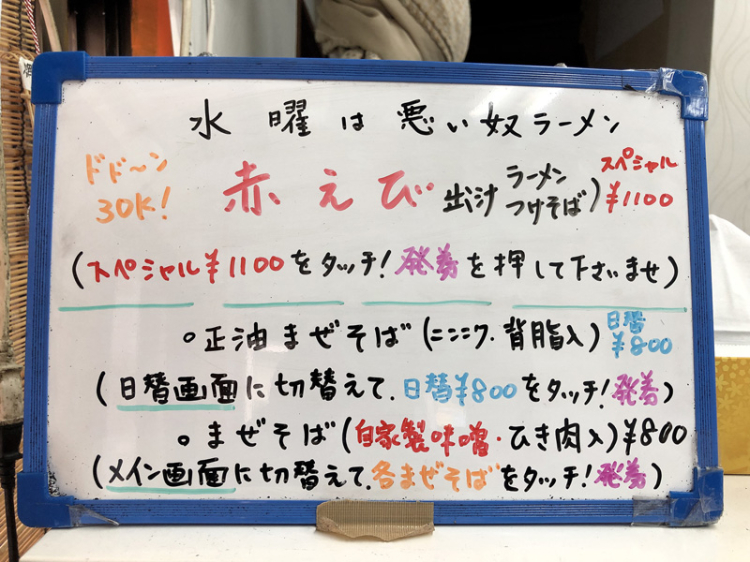 水曜は悪い奴ラーメン
ドド〜ン
30K!
赤えび 出汁 ラーメン つけそば) スペシャル ¥1100
(スペシャル¥1100をタッチ!発券を押して下さいませ)
○正油まぜそば(ニンニク.背脂入) 日替 ¥800
(日替画面に切替えて.日替¥800をタッチ!発券)
○まぜそば(自家製味噌・ひき肉入)¥800
(メイン画面に切替えて.各まぜそばをタッチ!発券)